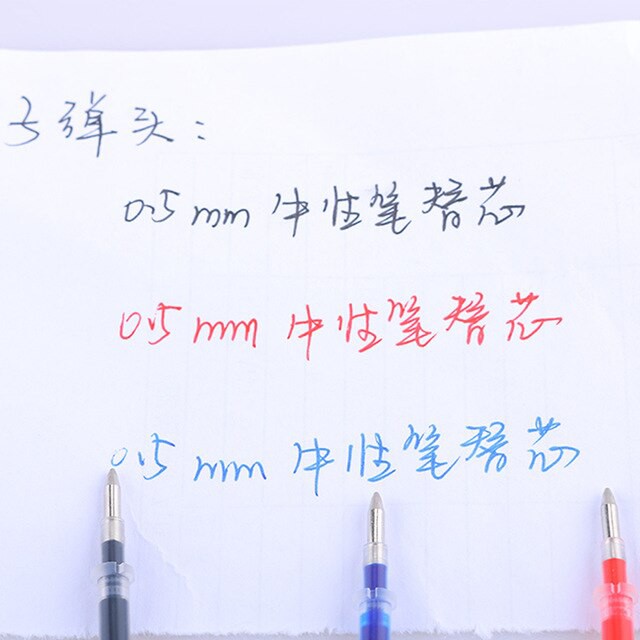 子弹头：
0.5mm 中性笔替芯
0.5mm 中性笔替芯
0.5mm 中性笔替芯